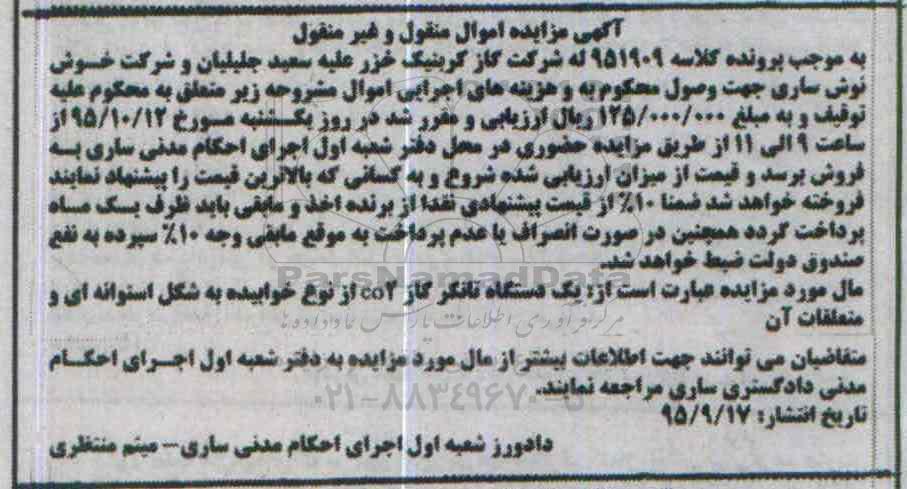 آگهی مزایده اموال منقول و غیر منقول
به موجب پرونده کلاسه ۹۵۱۹۰۹ له شرکت گاز کربنیک خزر علیه سعید جلیلیان و شرکت خوش
نوش ساری جهت وصول محکوم به و هزینه های اجرایی اموال مشروحه زیر متعلق به محکوم علیه
توقیف و به مبلغ ۱۲۵/۰۰۰/۰۰۰ ریال ارزیابی و مقرر شد در روز یکشنبه مورخ ۹۵/۱۰/۱۲ از
ساعت ۹ الی ۱۱ از طریق مزایده حضوری در محل دفتر شعبه اول اجرای احکام مدنی ساری به
فروش برسد و قیمت از میزان ارزیابی شده شروع و به کسانی که بالاترین قیمت را پیشنهاد نمایند
فروخته خواهد شد ضمنا ۱۰٪ از قیمت پیشنهادی نقدا از برنده اخذ و مابقی باید ظرف یک ماه
پرداخت گردد همچنین در صورت انصراف یا عدم پرداخت به موقع مابقی وجه ۱۰٪ سپرده به نفع
صندوق دولت ضبط خواهد شد.
ParsNamadData
مال مورد مزایده عبارت است از: یک دستگاه تانکر گاز co۲ از نوع خوابیده به شکل استوانه ای و
متعلقات آن
مرکز فرآوری اطلاعات پارس نماد داده ها
متقاضیان می توانند جهت اطلاعات بیشتر از مال مورد مزایده به دفتر شعبه اول اجرای احکام
مدنی دادگستری ساری مراجعه نمایند.
۰۲۱-۸۸۳۴۹۶۷۰
تاریخ انتشار: ۹۵/۹/۱۷
دادورز شعبه اول اجرای احکام مدنی ساری- میثم منتظری